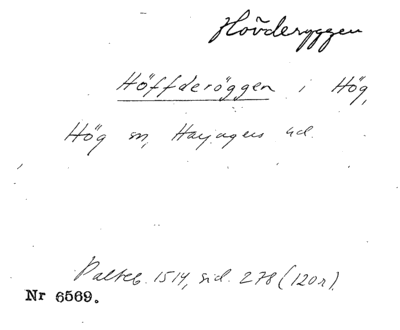 Hövderyggen
Höffderöggen i Hög,
Hög sn,
Palteb. 1514, sid. 278 (120r).
Nr 6569.